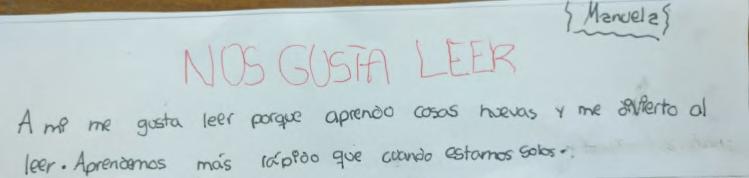 {Manuela}
NOS GUSTA LEER
A mi me gusta leer porque aprendo cosas nuevas y me divierto al
leer. Aprendemos más rápido que cuando estamos solos.